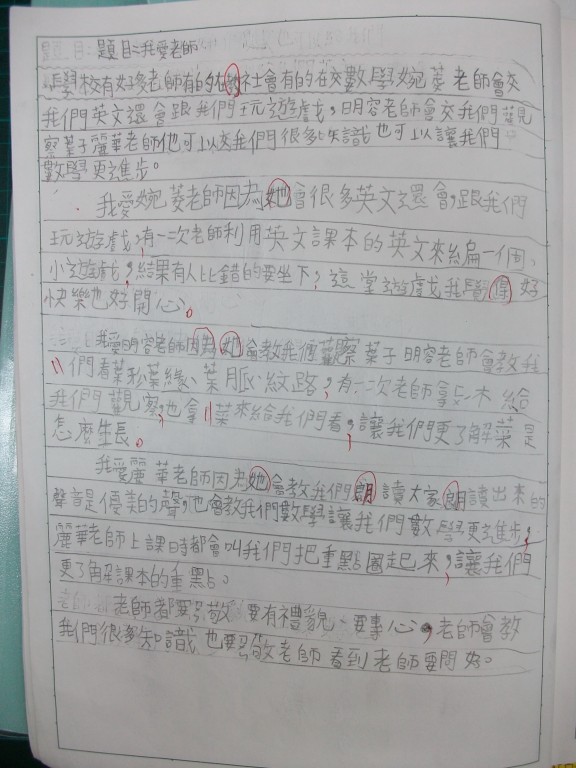 題目:我愛老師
學校有好多老師有的在教社會有的在交數學婉菱老師會交
我們英文還會跟我們玩遊戲,明容老師會交我們觀
察葉子麗華老師他可以教我們很多知識也可以讓我們
數學更進步。
我愛婉菱老師因為她會很多英文還會,跟我們
玩遊戲,有一次老師利用英文課本的英文來編一個,
小遊戲,結果有人比錯的要坐下,這堂遊戲我覺得好
快樂也好開心。
我愛明容老師因為她會教我們觀察葉子明容老師會教我
們看葉形葉緣、葉脈紋路,有一次老師拿積木給
我們觀察,也拿菜來給我們看,讓我們更了解菜是
怎麼生長。
我愛麗華老師因為她會教我們朗讀大家朗讀出來的
聲音是優美的聲,也會教我們數學讓我們數學更進步,
麗華老師上課時都會叫我們把重點圈起來,讓我們
更了解課本的重點。
老師都要尊敬、要有禮貌、要專心,老師會教
我們很多知識也要尊敬老師看到老師要問好。